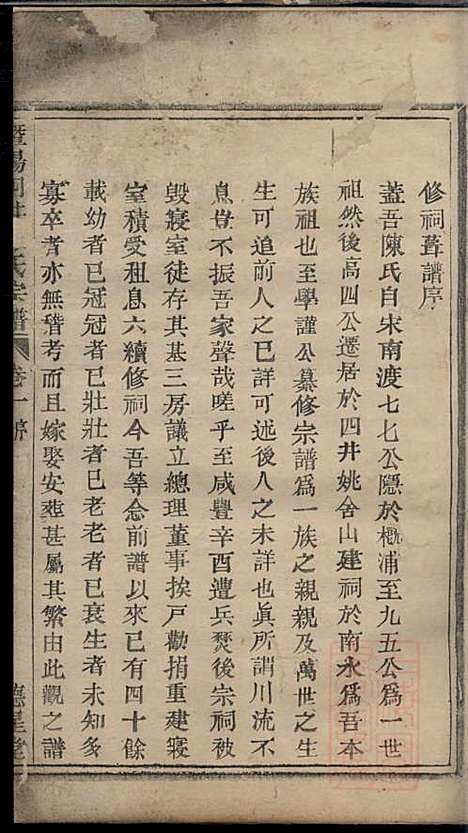 修祠葺譜序
蓋吾陳氏自宋南渡七七公隱於概浦至九五公為一世
祖然後高四公遷居於四井姚舍山建祠於南永為吾本
族祖也至學謹公纂修宗譜為一族之親親及萬世之生
生可追前人之已詳可述後人之未詳也眞所謂川流不
息豈不振吾家聲哉嗟乎至咸豐辛酉遭兵燹後宗祠被
毀寢室徒存其基三房議立總理董事挨戶勸捐重建寢
室積受租息六續修祠今吾等念前譜以來已有四十餘
載幼者已冠冠者已壯壯者已老老者已衰生者未知多
寡卒者亦無稽考而且嫁娶安葬甚屬其繁由此觀之譜
暨陽四井 氏宗譜 卷一 序 德星堂